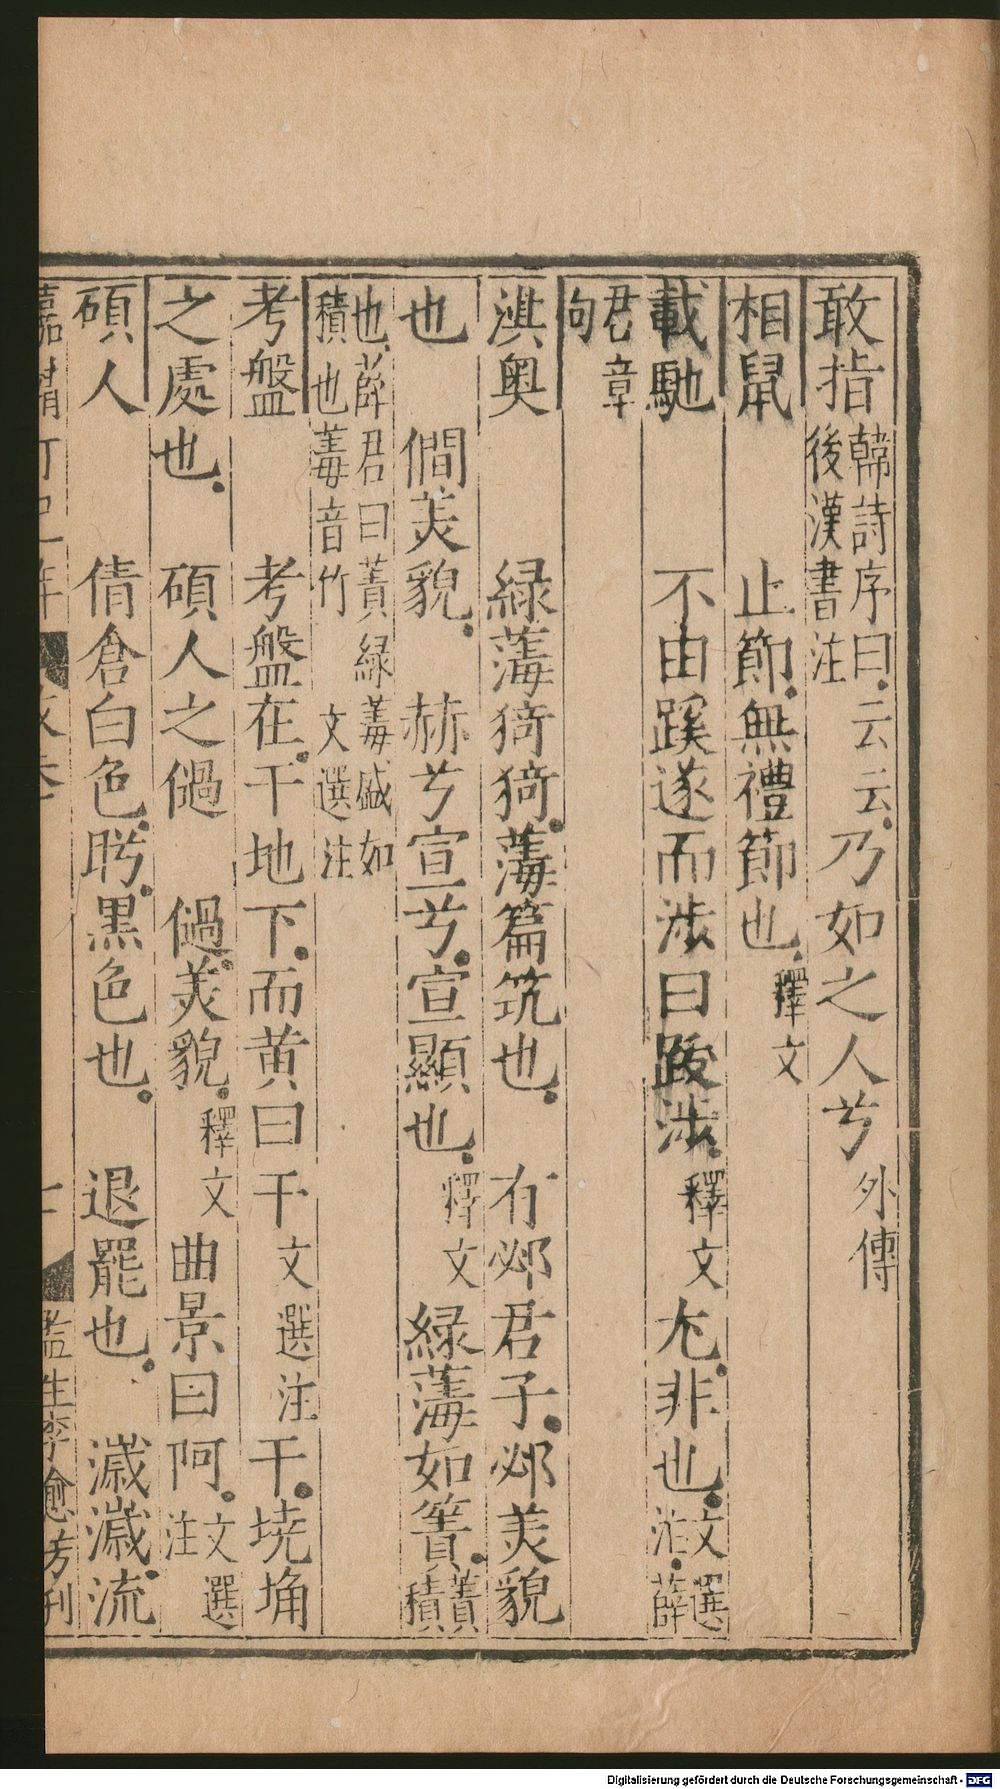 敢指韓詩序曰云云後漢書注乃如之人兮外傳
相鼠　止節無禮節也釋文
載馳　不由蹊遂而涉曰跋涉釋文尤非也文選注薛
君章句
淇奧　綠薄猗猗薄篇筑也　有邲君子邲美貌
也　僩美貌　赫兮宣兮宣顯也釋文綠薄如簀簀積
也薛君曰簀綠薄盛如積也薄音竹　文選注
考盤　考盤在干地下而黃曰干文選注干墝埆
之處也　碩人之𠈁　𠈁美貌釋文曲景曰阿文選注
碩人　倩倉白色盻黑色也　退罷也　濊濊流
監生李愈芳刊
Digitalisierung gefördert durch die Deutsche Forschungsgemeinschaft - DFG